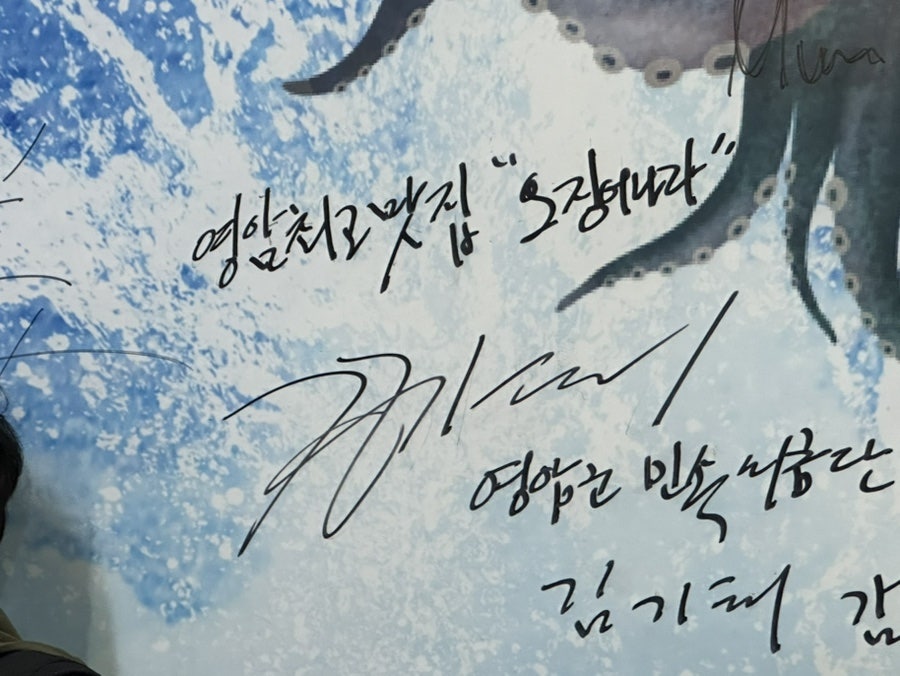 영암최고맛집 "오징어나라"
영암군 민속씨름단
김기태 감